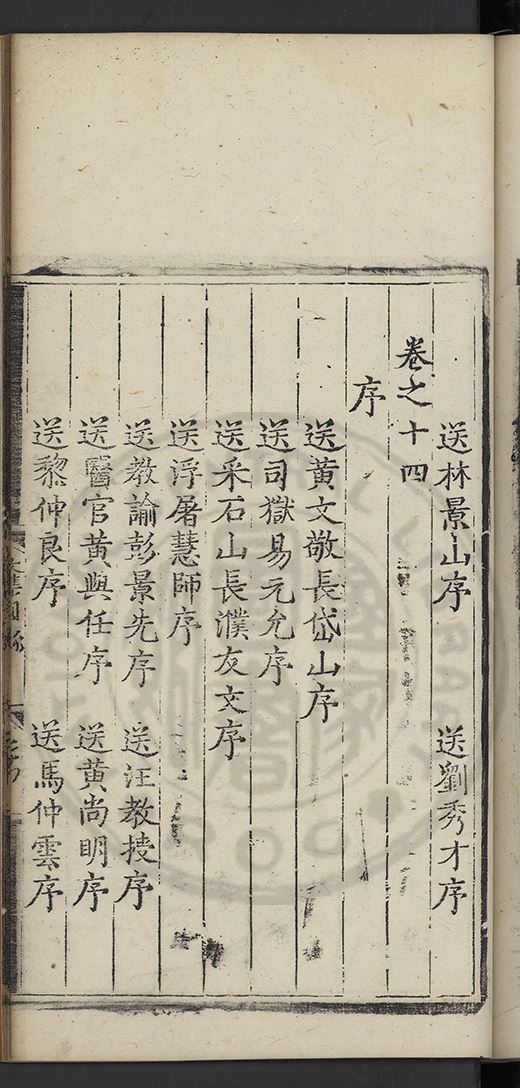 送林景山序　送劉秀才序
卷之十四
序
送黄文敬長岱山序
送司獄易元允序
送采石山長濮友文序
送浮屠慧師序
送教諭彭景先序　送汪教授序
送醫官黄與任序　送黄尚明序
送黎仲良序　送馬仲雲序